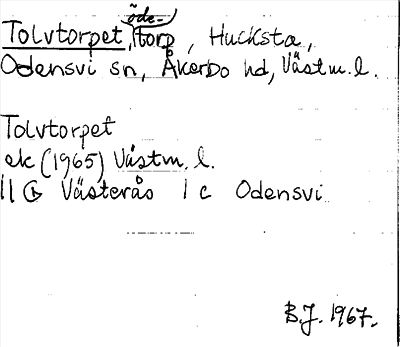 Tolvtorpet, öde-torp, Hucksta,
Odensvi sn, Åkerbo hd, Västm. l.
Tolvtorpet
ek (1965) Västm. l.
11 G Västerås 1 c Odensvi
B.J. 1967.